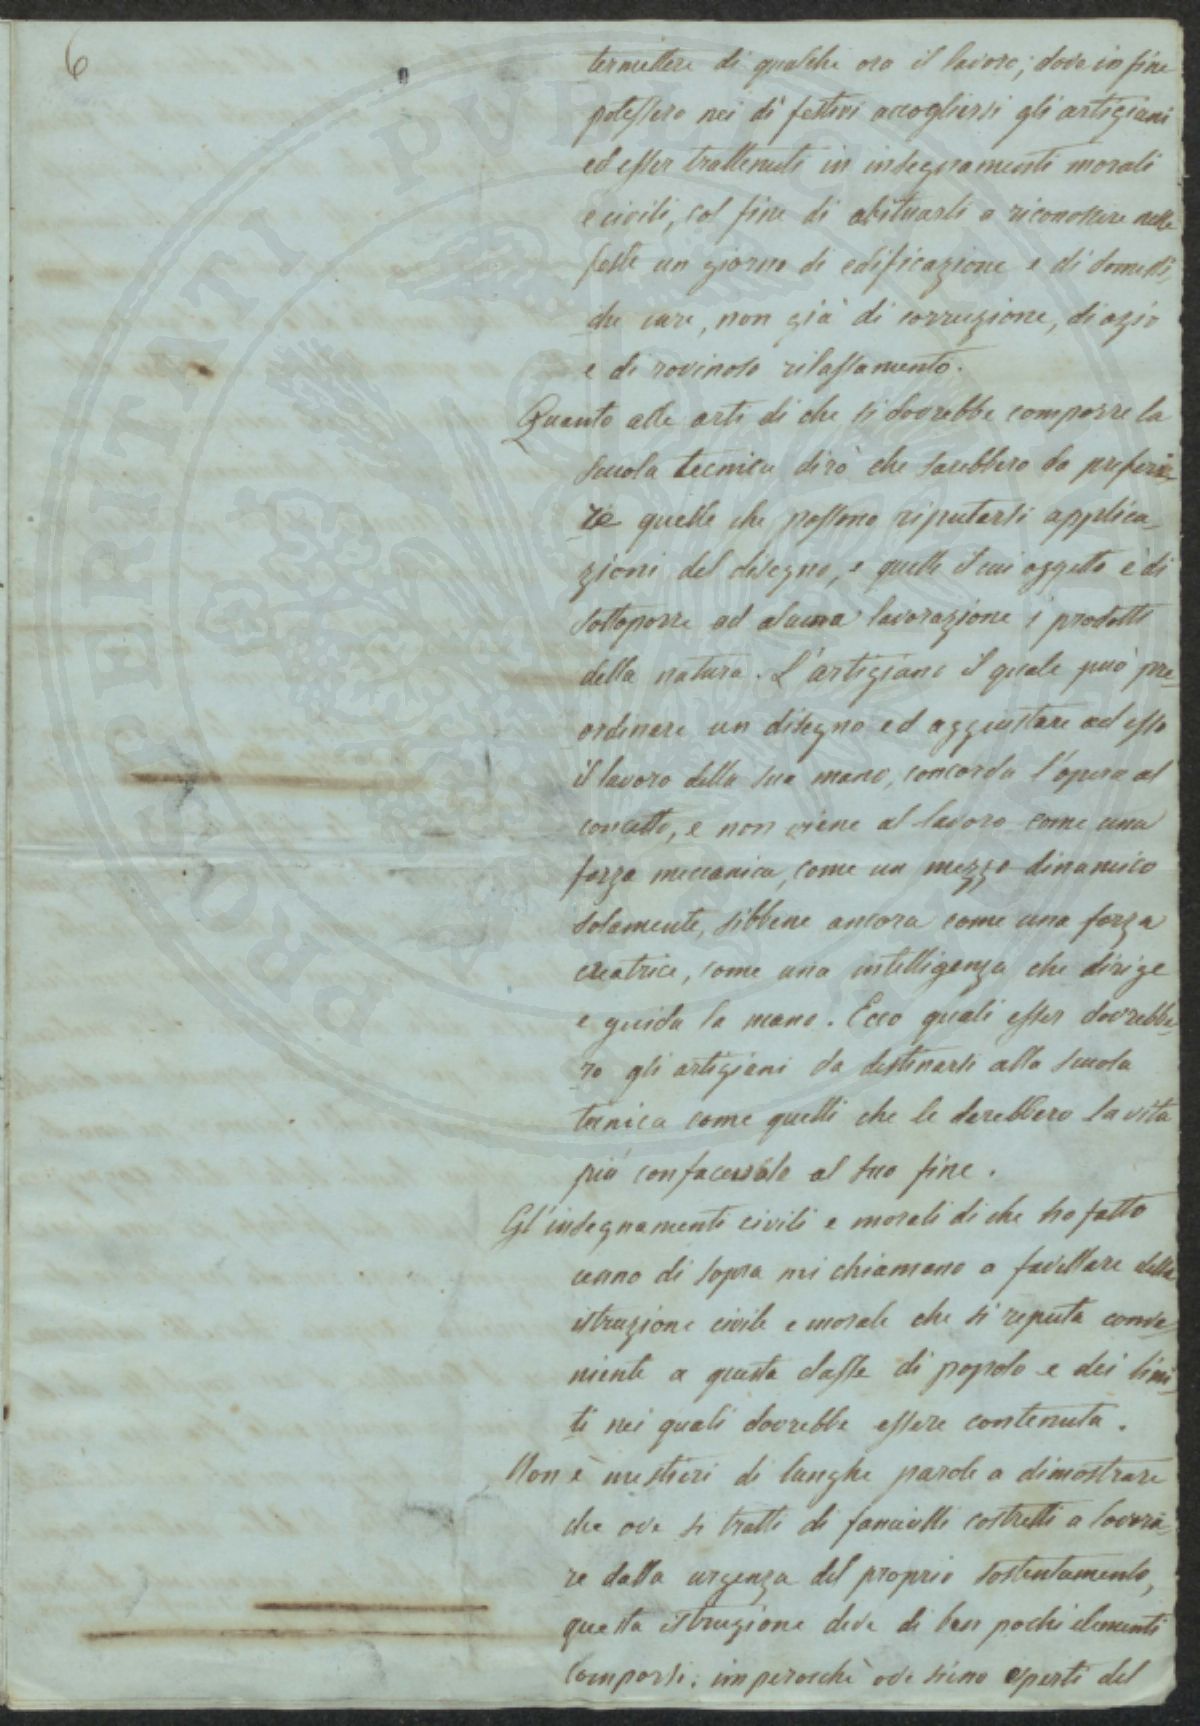 6
termettere di qualche ora il lavoro; dove in fine
potessero nei dì festivi accogliersi gli artigiani
ed esser trattenuti in insegnamenti morali
e civili, col fine di abituarli a riconoscere nelle
feste un giorno di edificazione e di domesti,
che cure, non già di corruzione, di ozio
e di rovinoso rilassamento.
Quanto alle arti di che si dovrebbe comporre la
scuola tecnica dirò che sarebbero da preferi-
re quelle che possono riputarsi applica-
zioni del disegno, e quelle il cui oggetto è di
sottoporre ad alcuna lavorazione i prodotti
della natura. L'artigiano il quale può pre-
ordinare un disegno ed aggiustare ad esso
il lavoro della sua mano, concorda l'opera al
concetto, e non viene al lavoro come una
forza meccanica, come un mezzo dinamico
solamente, sibbene ancora come una forza
creatrice, come una intelligenza che dirige
e guida la mano. Ecco quali esser dovrebbe-
ro gli artigiani da destinarsi alla scuola
tecnica come quelli che le darebbero la vita
più confacevole al suo fine.
Gl'insegnamenti civili e morali di che ho fatto
cenno di sopra mi chiamano a favellare della
istruzione civile e morale che si reputa conve-
niente a questa classe di popolo e dei limi-
ti nei quali dovrebbe essere contenuta.
Non è mestieri di lunghe parole a dimostrare
che ove si tratti di fanciulli costretti a lavora-
re dalla urgenza del proprio sostentamento,
questa istruzione deve di ben pochi elementi
comporsi; imperocchè ove sieno esperti del
PROSPERITATI PVBLICAE